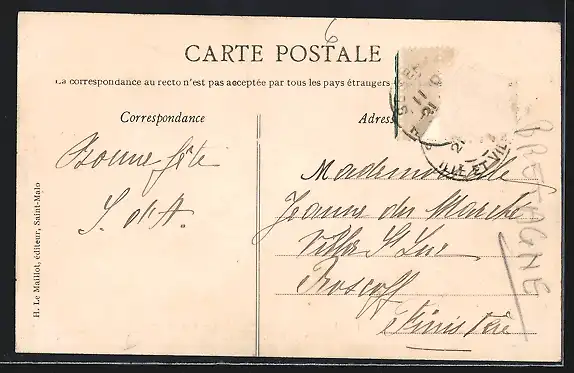 6
CARTE POSTALE
La correspondance au recto n'est pas acceptée par tous les pays étrangers
Correspondance
Adress
Bonne fête
S. d'A.
Mademoiselle
Jeanne du Marche
Villa St Luc
Roscoff
Finistère
ILLE-ET-VIL
BRETAGNE
H. Le Maillot, éditeur, Saint-Malo